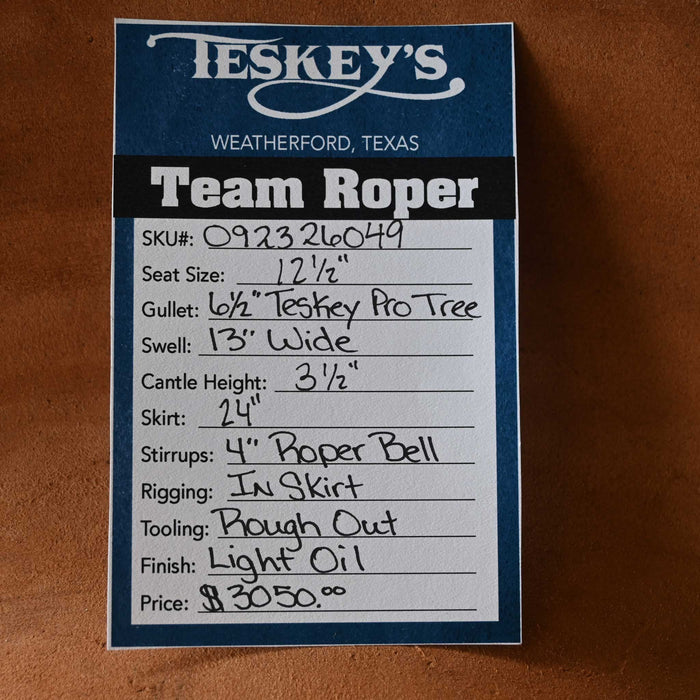 TESKEY'S
WEATHERFORD, TEXAS
Team Roper
SKU#: 092326049
Seat Size: 12 1/2"
Gullet: 6 1/2" Teskey Pro Tree
Swell: 13" Wide
Cantle Height: 3 1/2"
Skirt: 24"
Stirrups: 4" Roper Bell
Rigging: In Skirt
Tooling: Rough Out
Finish: Light Oil
Price: $3050.00